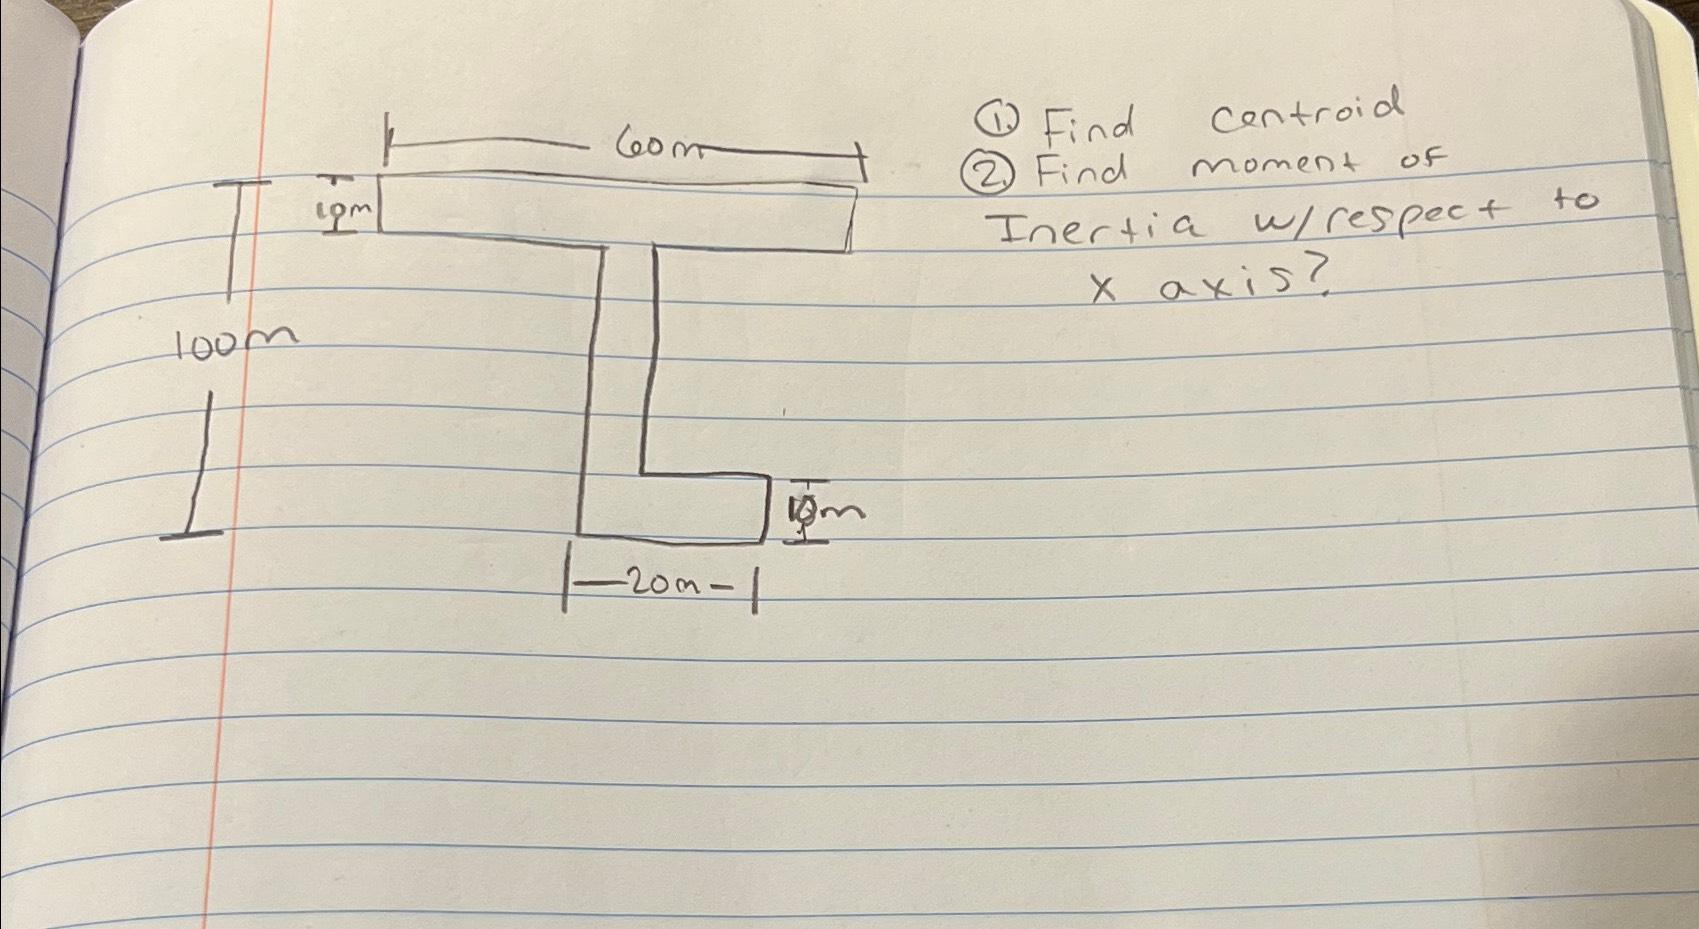 60m
① Find centroid
② Find moment of
Inertia w/respect to
x axis?
10m
100m
10m
20m